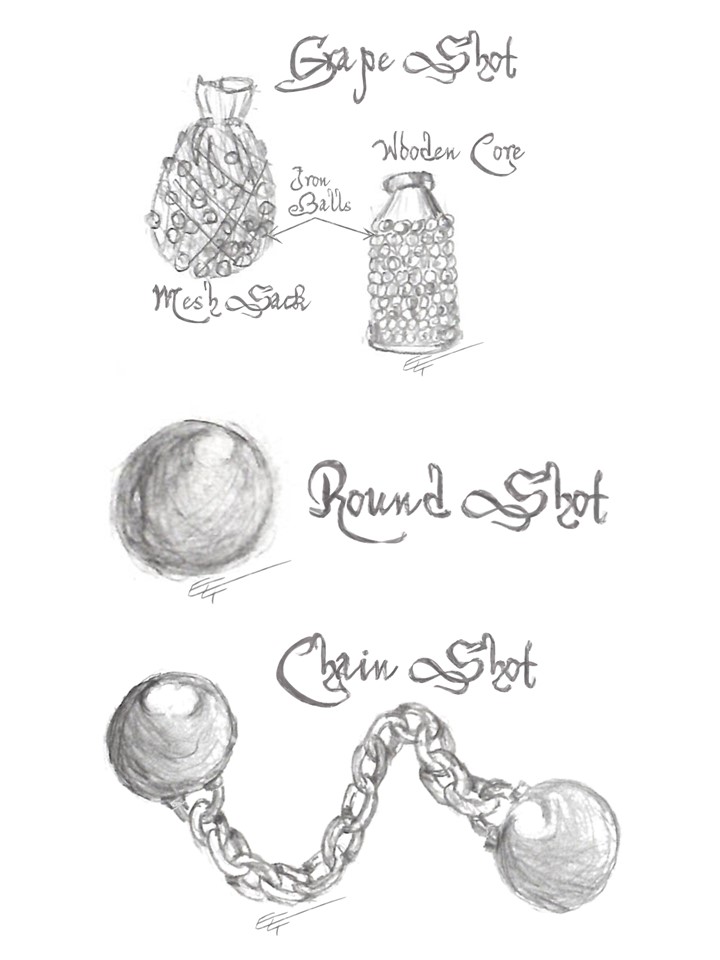 Grape Shot
Wooden Core
Iron
Balls
Mesh Sack
Round Shot
Chain Shot